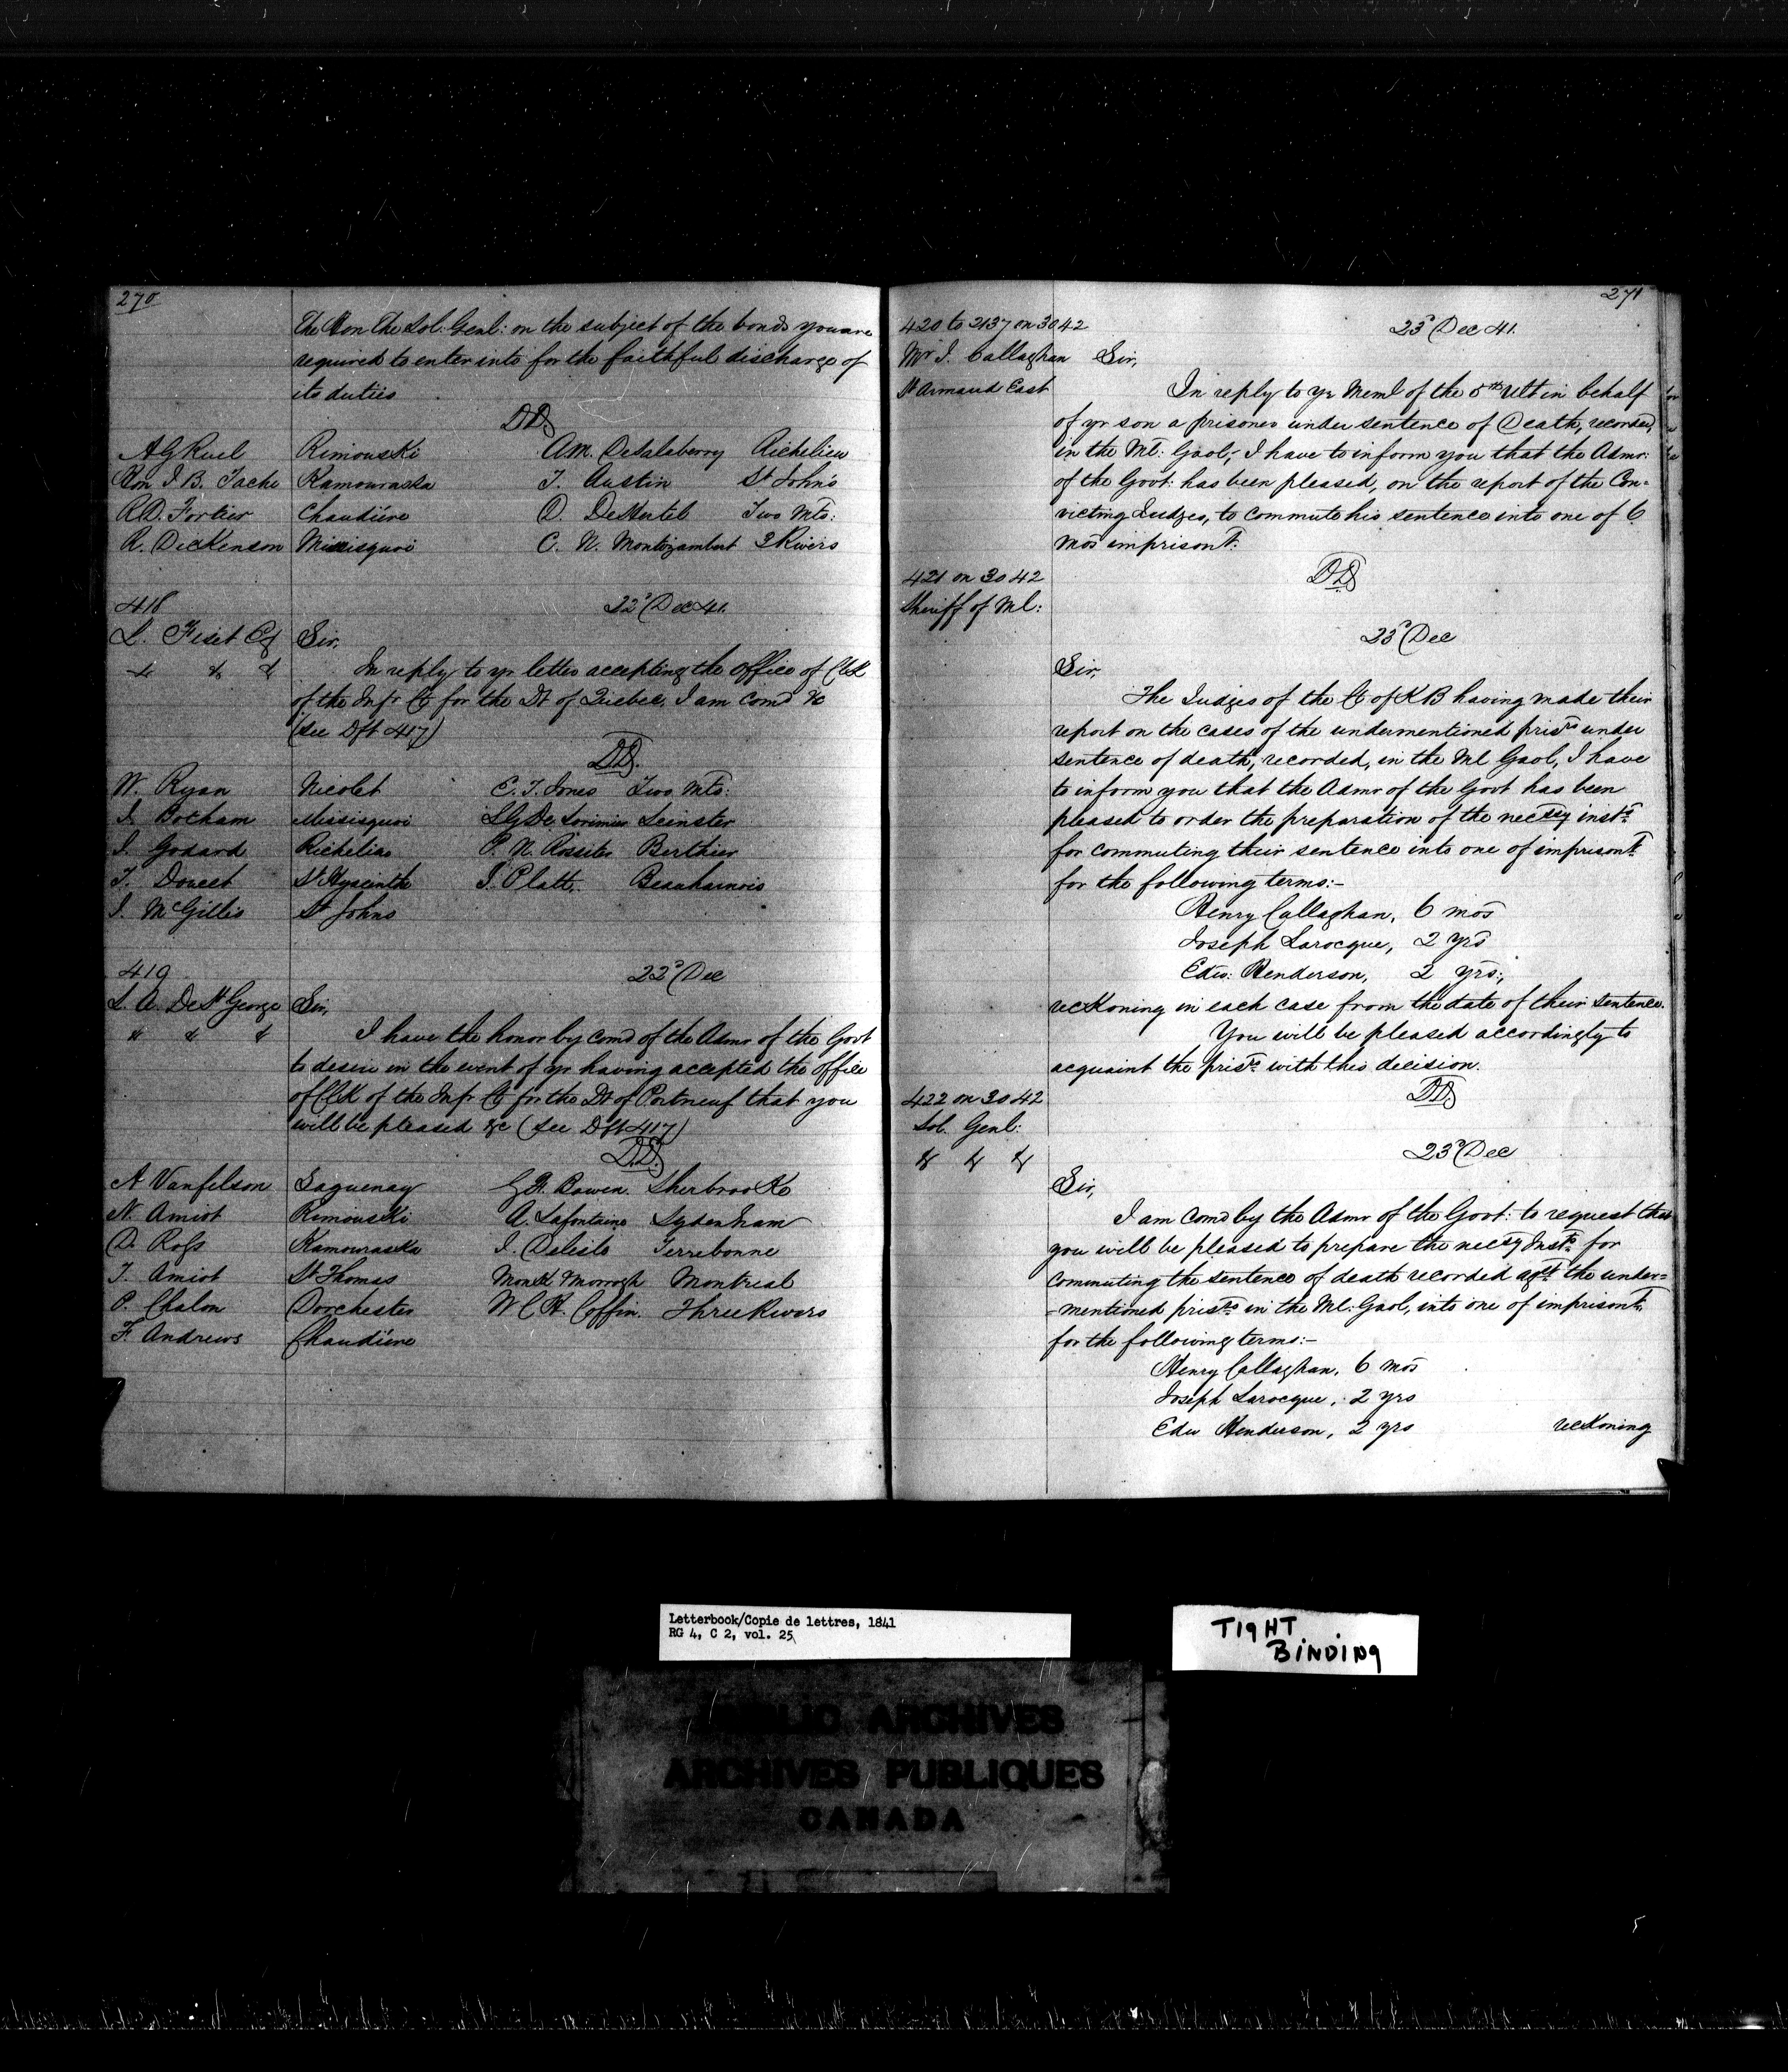 270
The Hon The Sol: Genl: on the subject of the bonds you are
required to enter into for the faithful discharge of
its duties
DD
A G Ruel Rimouski AM. DeSalaberry Richelieu
Hon J B. Tache Kamouraska T. Austin St Johns
R.O. Fortier Chaudiére D. DeHertel Two Mts:
R. Dickenson Missisquoi C. N. Montizambert 3 Rivers
418 22d Dec 41.
L. Fiset Esq Sir,
& & & In reply to yr letter accepting the office of Clk
of the Infr Ct for the Dt of Quebec, I am comd &c
(see Dft 417)
DD.
W. Ryan Nicolet C. T. Jones Two Mts:
J. Botham Missisquoi LG De Lorimier Leinster
J. Godard Richelieu P. N. Rossiter Berthier
T. Doucet St Hyacinthe J. Platt. Beauharnois
J. McGillis St Johns
419 22d Dec
L. A. De St George Sir,
& & & I have the honor by comd of the Admr of the Govt
to desire in the event of yr having accepted the office
of Clk of the Infr Ct for the Dt of Portneuf that you
will be pleased &c (see Dft 417)
D.D.
A Vanfelson Saguenay G.F. Bowen. Sherbrooke
N. Amiot Rimouski A. Lafontaine Sydenham
D. Ross Kamouraska J. Delisle Terrebonne
T. Amiot St Thomas Monk & Morrogh Montreal
P. Chalon Dorchester W C H. Coffin. Three Rivers
F. Andrews Chaudiére
271
420 to 2137 on 3042 23d Dec 41.
Mr J. Callaghan Sir,
St Armand East In reply to yr Meml of the 5th Ult in behalf
of yr son a prisoner under sentence of Death, recorded,
in the Ml: Gaol,- I have to inform you that the Admr:
of the Govt: has been pleased, on the report of the Con-
victing Judges, to commute his sentence into one of 6
mos imprisont:
DD
421 on 3042
Sheriff of Ml:
23d Dec
Sir,
The Judges of the Ct of KB having made their
report on the cases of the undermentioned prisrs under
sentence of death, recorded, in the Ml Gaol, I have
to inform you that the Admr of the Govt has been
pleased to order the preparation of the necssy insts
for commuting their sentence into one of imprisont
for the following terms:-
Henry Callaghan, 6 mos
Joseph Larocque, 2 yrs
Edw: Henderson, 2 yrs:,
reckoning in each case from the date of their sentence.
You will be pleased accordingly to
acquaint the prisrs with this decision.
DD
422 on 3042
Sol. Genl:
& & &
23d Dec
Sir,
I am comd by the Admr of the Govt: to request that
you will be pleased to prepare the necsy Insts for
commuting the sentence of death recorded agst the under=
=mentioned prisrs in the Ml: Gaol, into one of imprisont,
for the following terms:-
Henry Callaghan, 6 mos
Joseph Larocque, 2 yrs
Edw Henderson, 2 yrs reckoning
Letterbook/Copie de lettres, 1841
RG 4, C 2, vol. 25
TIGHT
BINDING
PUBLIC ARCHIVES
ARCHIVES PUBLIQUES
CANADA